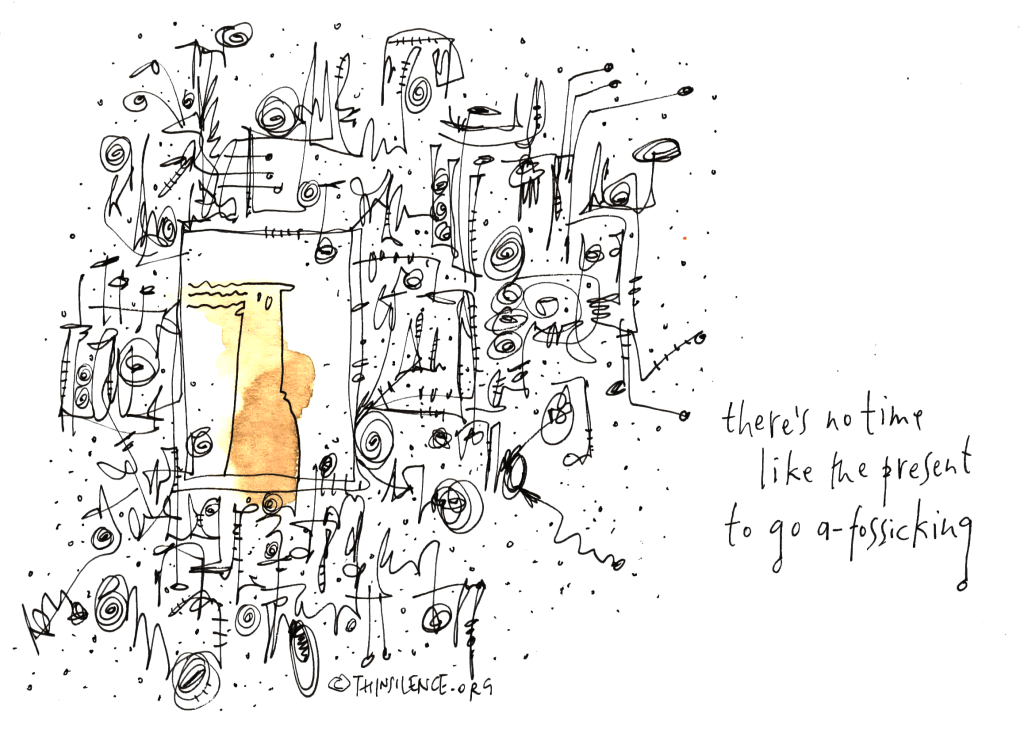 there's no time
like the present
to go a-fossicking
©THINSILENCE.ORG